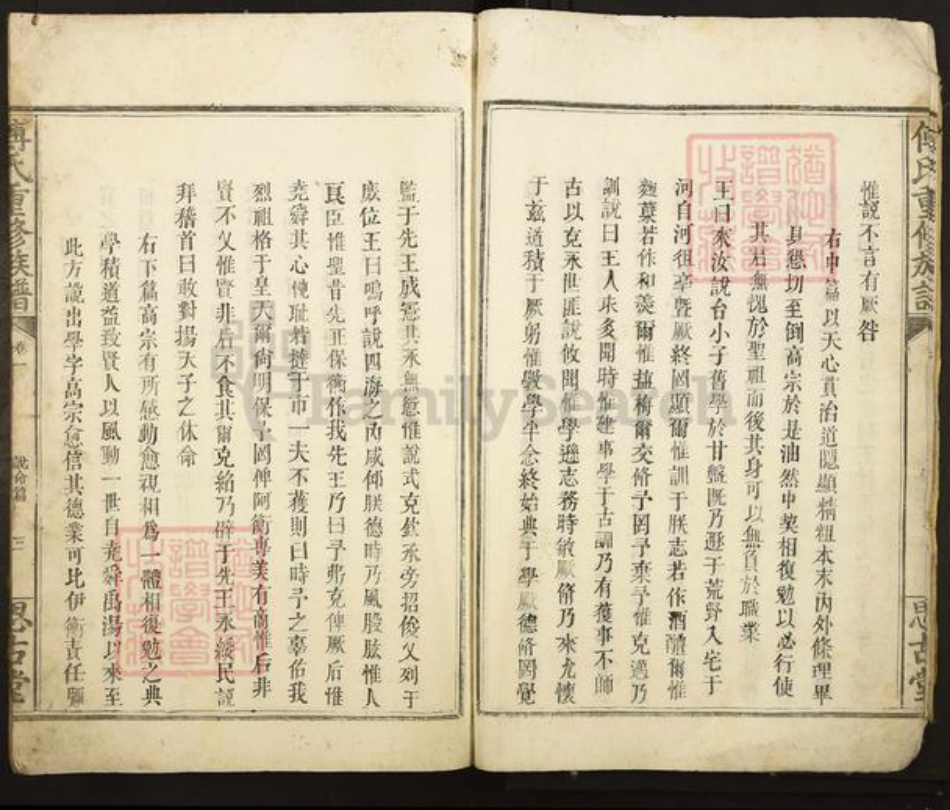 傅氏重修族譜
思古堂
惟說不言有厥咎
右中篇以天心貫治道隱顯精粗本末內外條理畢
具懇切至倒高宗於是油然中契相復勉以必行使
其君無愧於聖祖而後其身可以無負於職業
王曰來汝說台小子舊學於甘盤旣乃遯于荒野入宅于
河自河徂亳曁厥終罔顯爾惟訓于朕志若作酒醴爾惟
麴蘖若作和羹爾惟鹽梅爾交脩予罔予棄予惟克邁乃
訓說曰王人求多聞時惟建事學于古訓乃有獲事不師
古以克永世匪說攸聞惟學遜志務時敏厥脩乃來允懷
于茲道積于厥躬惟斆學半念終始典于學厥德脩罔覺
監于先王成憲其永無愆惟說式克欽承旁招俊乂列于
庶位王曰嗚呼說四海之內咸仰朕德時乃風股肱惟人
良臣惟聖昔先正保衡作我先王乃曰予弗克俾厥后惟
堯舜其心愧耻若撻于市一夫不獲則曰時予之辜佑我
烈祖格于皇天爾尙明保予罔俾阿衡專美有商惟后非
賢不乂惟賢非后不食其爾克紹乃辟于先王永綏民說
拜稽首曰敢對揚天子之休命
右下篇高宗有所感動愈視相為一體相復勉之典
學積道益致賢人以風動一世自堯舜禹湯以來至
此方說出學字高宗愈信其德業可比伊衡責任彌
傅氏重修族譜
卷一
說命篇
三
思古堂
FamilySearch